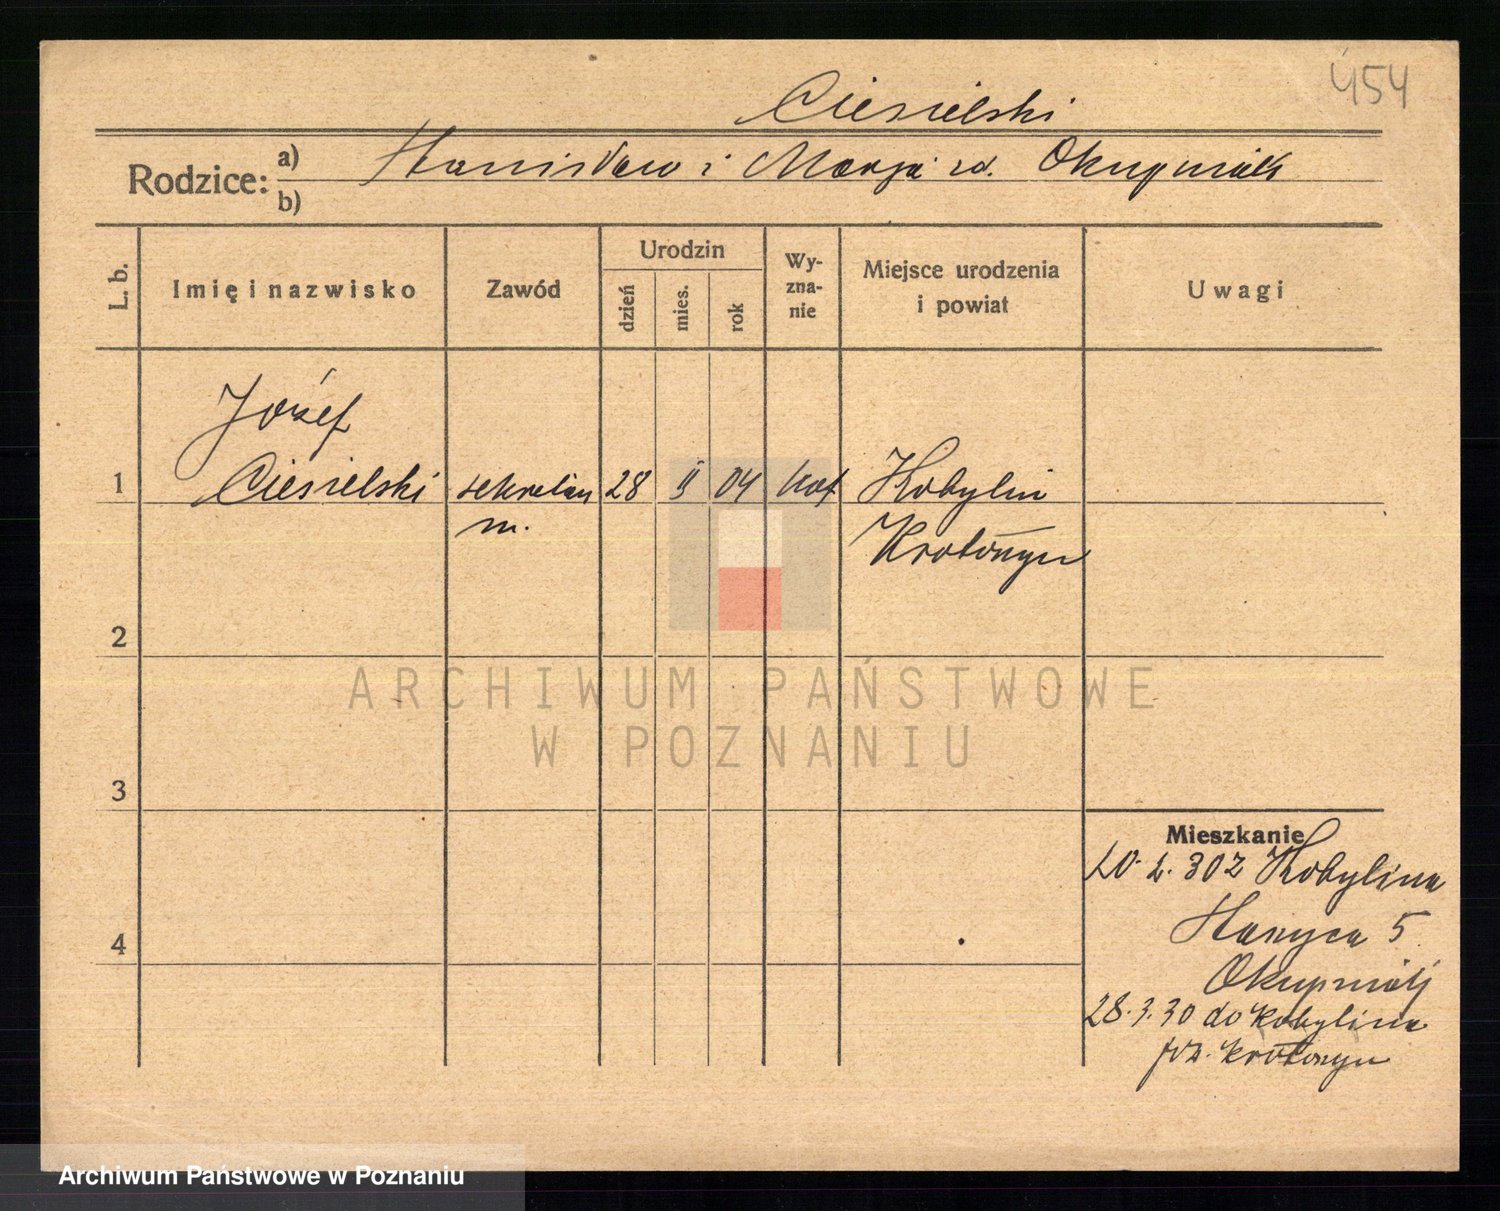 454
Ciesielski
Rodzice: a) Stanisław i Marja zd. Okupniak
b)
L. b.
Imię i nazwisko
Zawód
Urodzin
dzień
mies.
rok
Wy-
zna-
nie
Miejsce urodzenia
i powiat
Uwagi
Józef
1 Ciesielski sekretarz 28 II 04 kat Kobylin
m. Krotoszyn
2
ARCHIWUM PAŃSTWOWE
W POZNANIU
3
Mieszkanie
20. 2. 30 z Kobylina
5
4
Okupniak
28. 3. 30 do Kobylina
pow. Krotoszyn
Archiwum Państwowe w Poznaniu